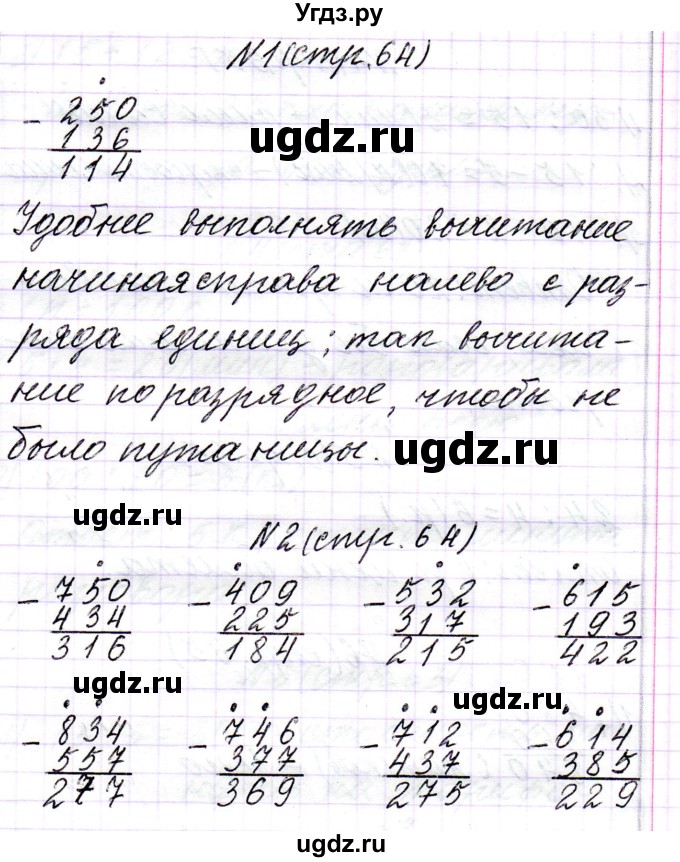 Угдз.ру
N1(стр.64)
- 250
136
114
ugdz.ru
Удобнее выполнять вычитание
начиная справа налево с раз-
ряда единиц; тап вычита-
ние поразрядное, чтобы не
было путаницы.
ugdz.ru
ugdz.ru
N2(стр. 64)
- 750 - 409 - 532 - 615
434 225 317 193
316 184 215 422
ugdz.ru ugdz.ru
- 834 - 746 - 712 - 614
557 377 437 385
277 369 275 229
ugdz.ru